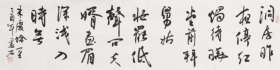 洞房昨
夜停紅
燭待曉
堂前拜
舅姑
妝罷低
聲問夫
婿畫眉
深淺入
時無